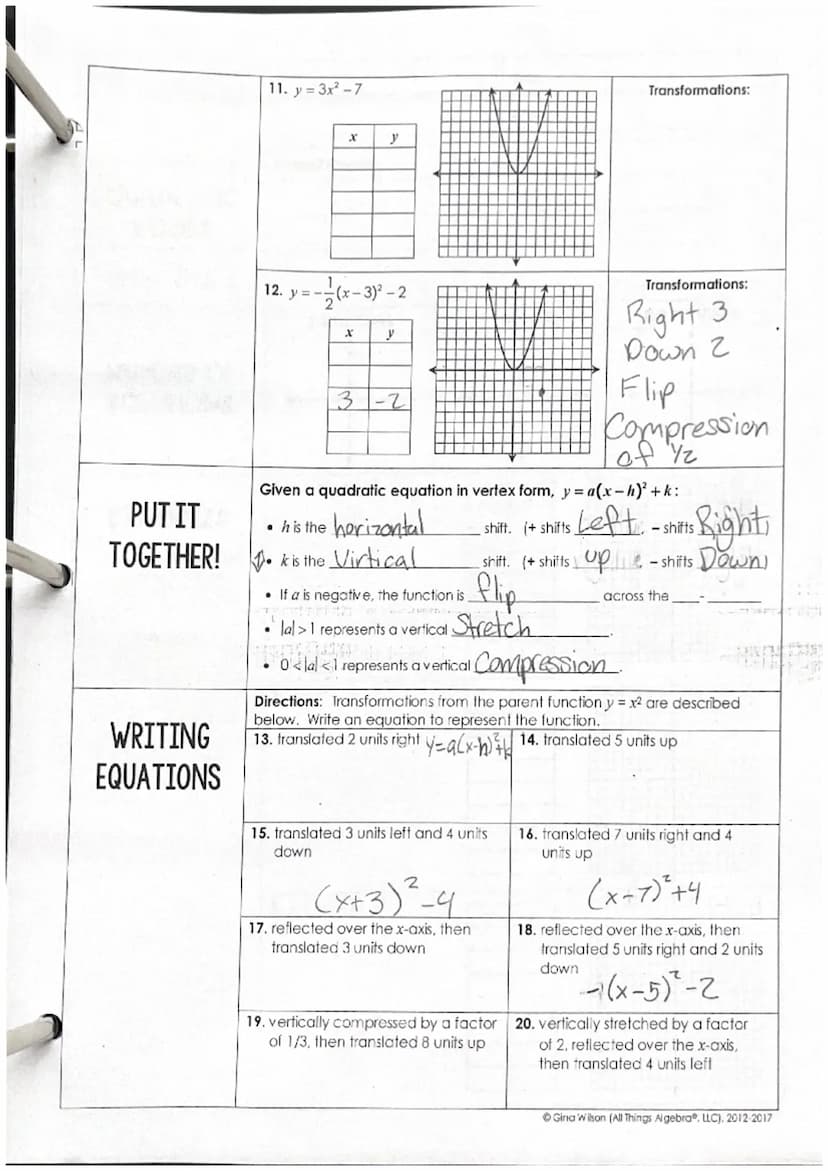 11. y = 3x² – 7
Transformations:
x y
12. y = -1/2(x – 3)² – 2
Transformations:
x y
3 -2
Right 3
Down 2
Flip
Compression
of 1/2
PUT IT
TOGETHER!
Given a quadratic equation in vertex form, y = a(x – h)² + k:
• h is the horizontal shift. (+ shifts Left, – shifts Right)
• k is the Virtical shift. (+ shifts up, – shifts Down)
• If a is negative, the function is flip across the
• |a| > 1 represents a vertical Stretch.
• 0 < |a| < 1 represents a vertical Compression.
WRITING
EQUATIONS
Directions: Transformations from the parent function y = x² are described
below. Write an equation to represent the function.
13. translated 2 units right y=a(x-h)²+k
14. translated 5 units up
15. translated 3 units left and 4 units
down
(x+3)²-4
16. translated 7 units right and 4
units up
(x-7)²+4
17. reflected over the x-axis, then
translated 3 units down
18. reflected over the x-axis, then
translated 5 units right and 2 units
down
-1(x-5)²-2
19. vertically compressed by a factor
of 1/3, then translated 8 units up
20. vertically stretched by a factor
of 2, reflected over the x-axis,
then translated 4 units left
© Gina Wilson (All Things Algebra®, LLC), 2012-2017